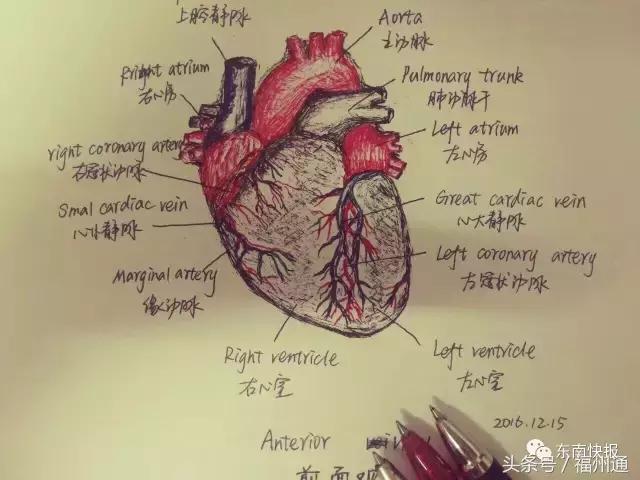 上腔静脉
Aorta
主动脉
Rright atrium
右心房
Pulmonary trunk
肺动脉干
Left atrium
左心房
right coronary artery
右冠状动脉
Smal cardiac vein
心小静脉
Great cardiac vein
心大静脉
Marginal artery
缘动脉
Left coronary artery
左冠状动脉
Right ventricle
右心室
Left ventricle
左心室
2016.12.15
Anterior
前面观
东南快报
头条号／福州通